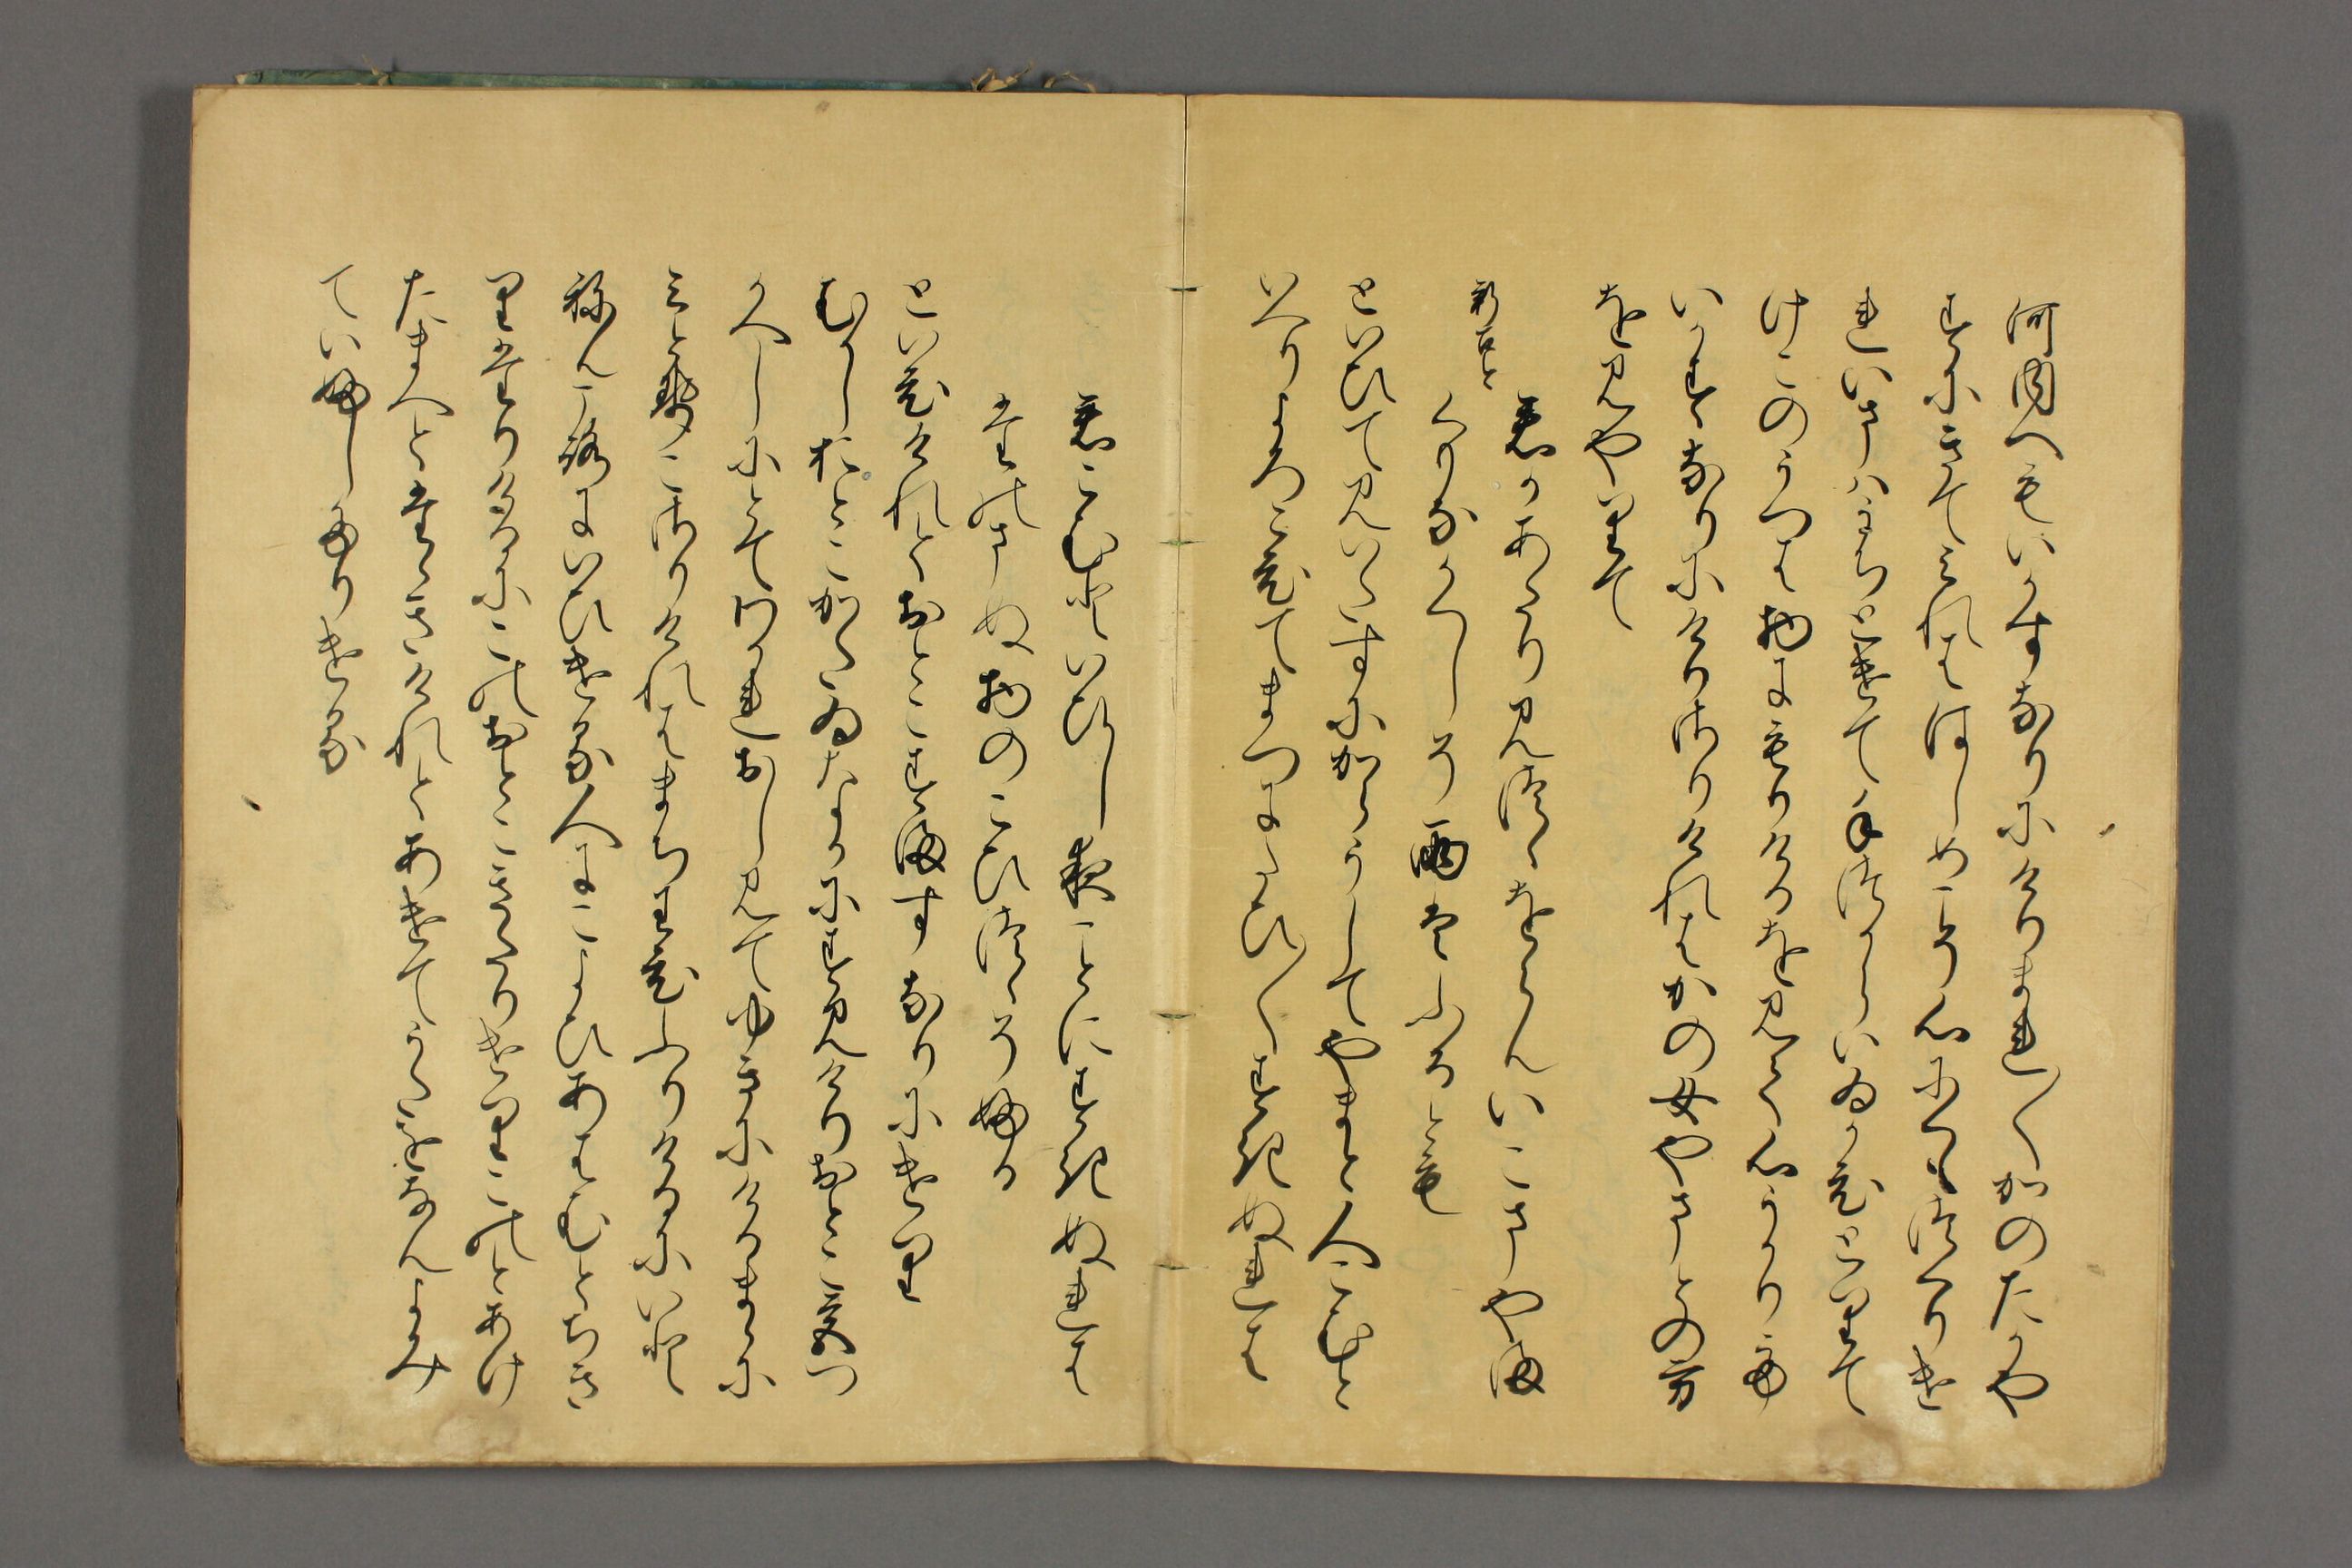 河内へもいかすなりにけりまれ〳〵かのたかや
すにきてみれははしめこそ心にくゝつくりけ
れいまはうちとけて手つからいゐかひとりて
けこのうつは物にもりけるを見て心うかりて
いかすなりにけりさりけれはかの女やまとの方
を見やりて
新古今
君かあたり見つゝををらんいこま山
くもなかくしそ雨はふるとも
といひて見いたすにからうしてやまと人こむと
いへりよろこひてまつにたひ〳〵すきぬれは
君こむといひし夜ことにすきぬれは
たのまぬ物のこひつゝそぬる
といひけれとおとこすますなりにけり
むかしおとこかたゐなかにすみけりおとこ宮つ
かへしにとてわかれおしみてゆきにけるまゝに
三とせこさりけれはまちわひたりけるにいと
ねんころにいひける人にこよひあはむとちき
りたりけるにこのおとこきたりけりこのとあけ
たまへとたゝきけれとあけてうたをなんよみ
ていたしたりける